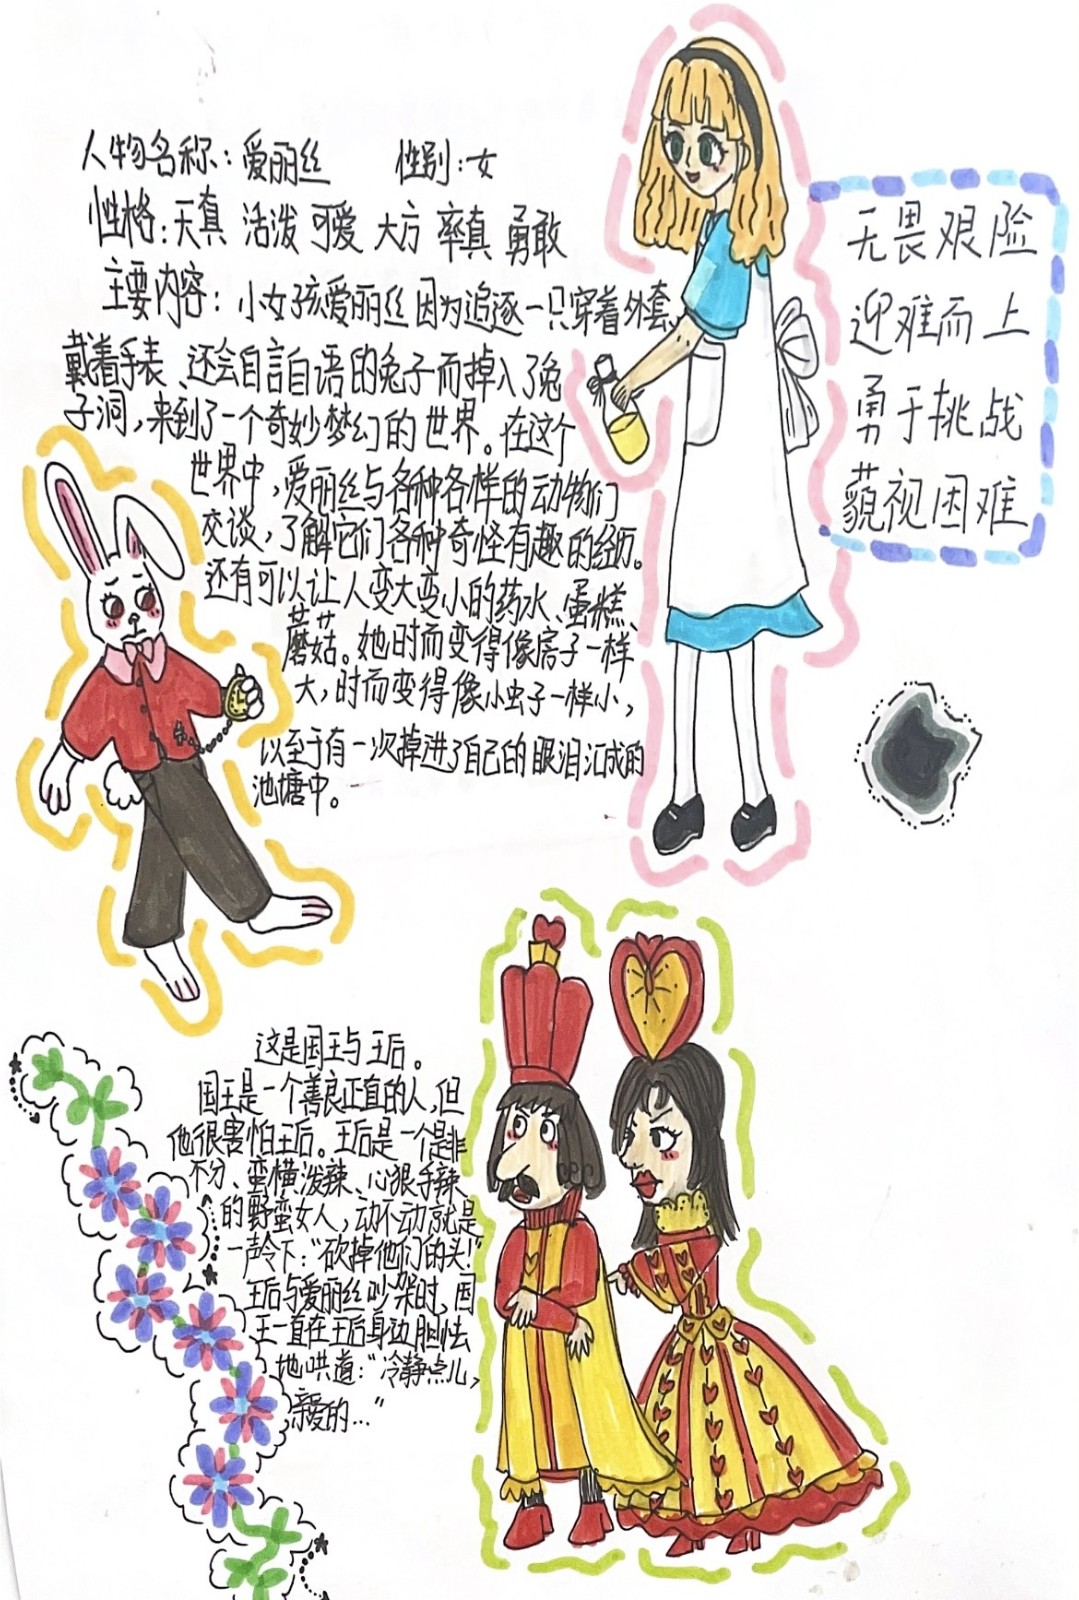 人物名称：爱丽丝 性别：女
性格：天真 活泼 可爱 大方 率真 勇敢
主要内容：小女孩爱丽丝因为追逐一只穿着外套、
戴着手表、还会自言自语的兔子而掉入了兔
子洞，来到了一个奇妙梦幻的世界。在这个
世界中，爱丽丝与各种各样的动物们
交谈，了解它们各种奇怪有趣的经历。
还有可以让人变大变小的药水、蛋糕、
蘑菇。她时而变得像房子一样
大，时而变得像小虫子一样小，
以至于有一次掉进了自己的眼泪汇成的
池塘中。
无畏艰险
迎难而上
勇于挑战
藐视困难
这是国王与王后。
国王是一个善良正直的人，但
他很害怕王后。王后是一个是非
不分、蛮横泼辣、心狠手辣
的野蛮女人，动不动就是
一声令下：“砍掉他们的头！”
王后与爱丽丝吵架时，国
王一直在王后身边胆怯
地哄道：“冷静点儿，
亲爱的…”